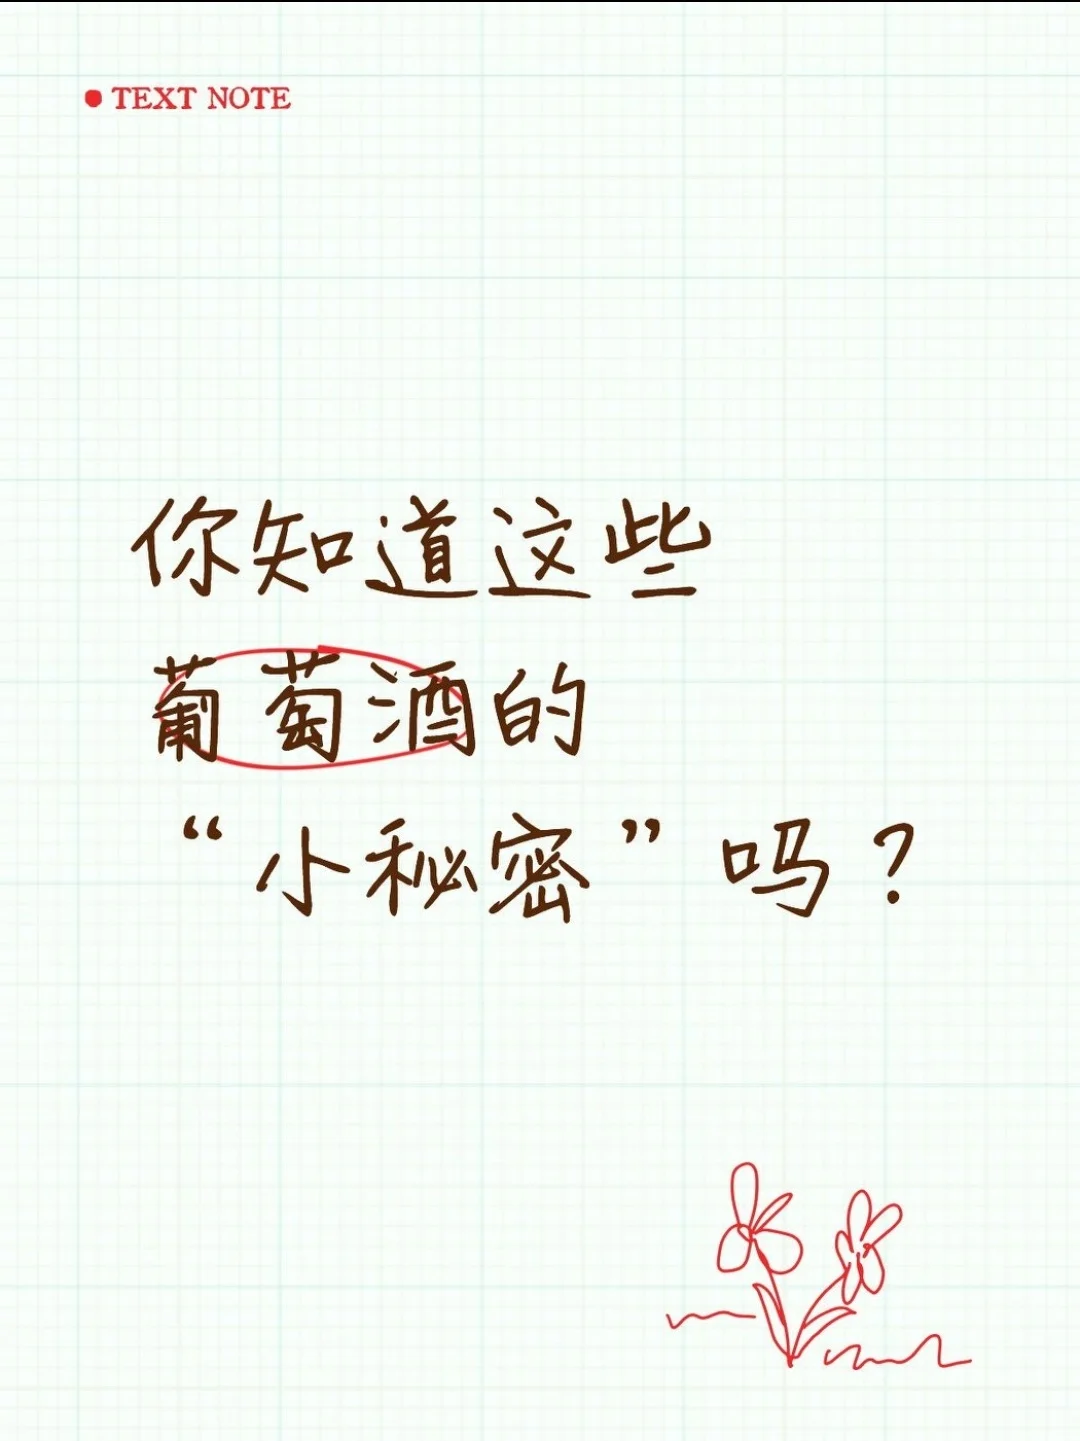 TEXT NOTE
你知道这些
葡萄酒的
“小秘密”吗？